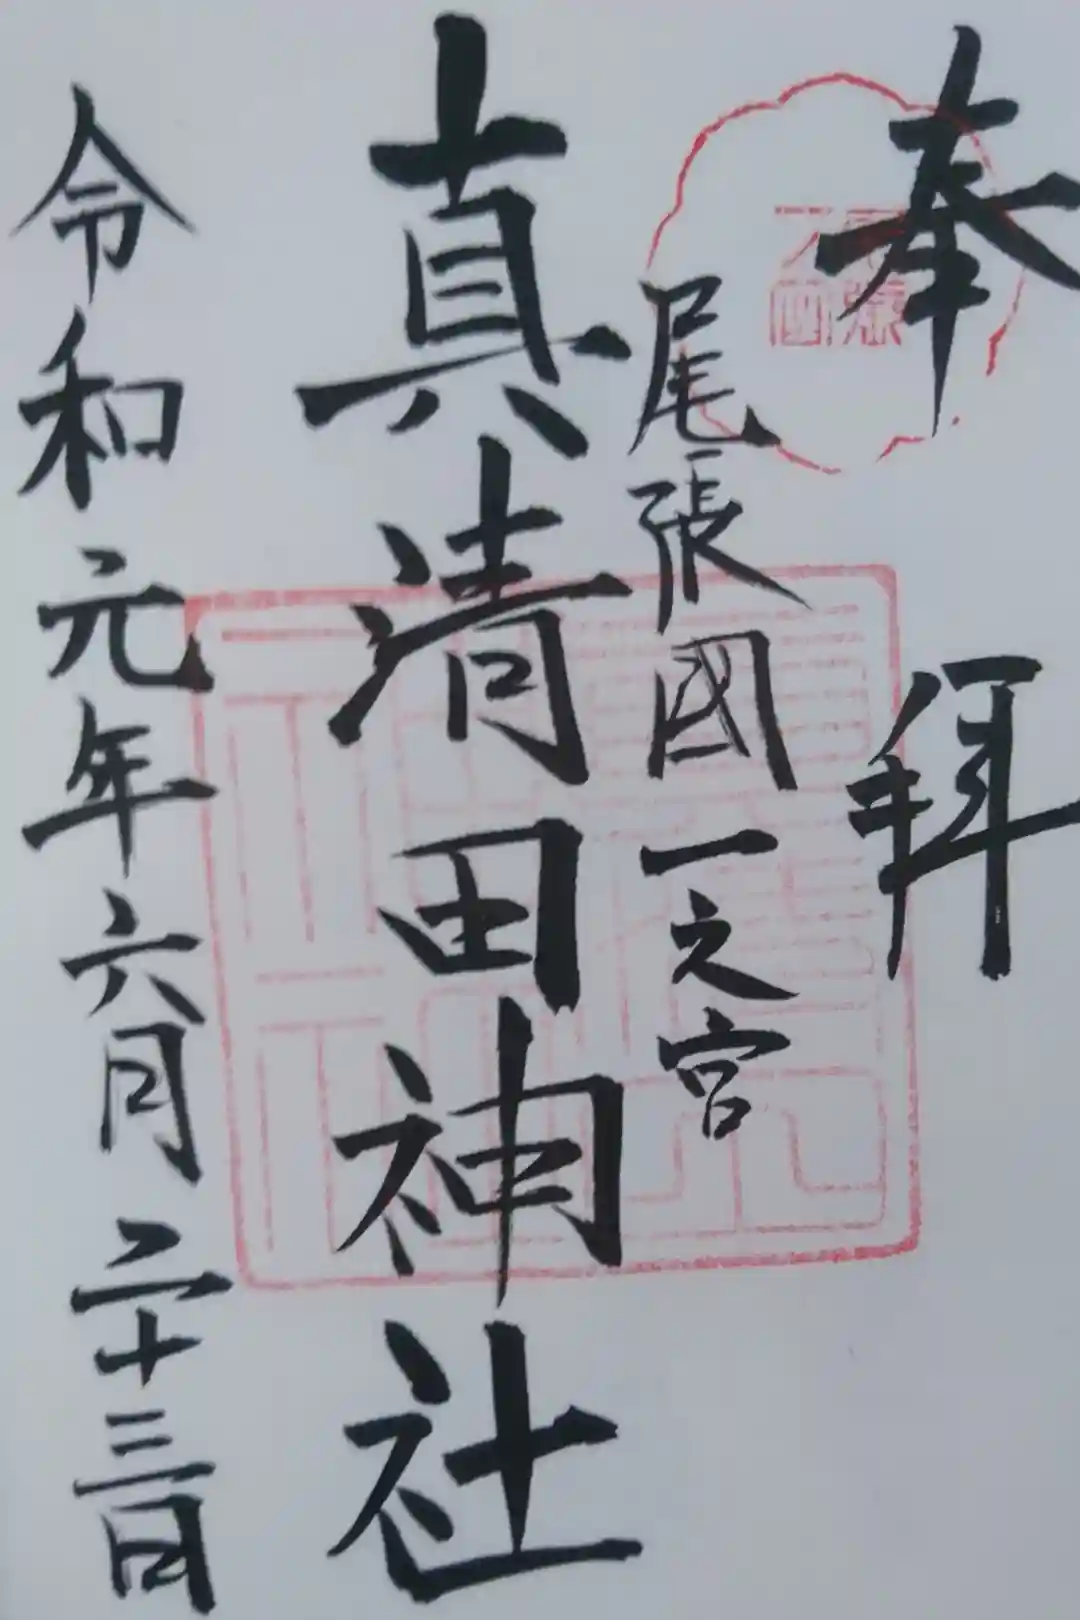 奉拝
尾張國一之宮
真清田神社
令和元年六月二十三日